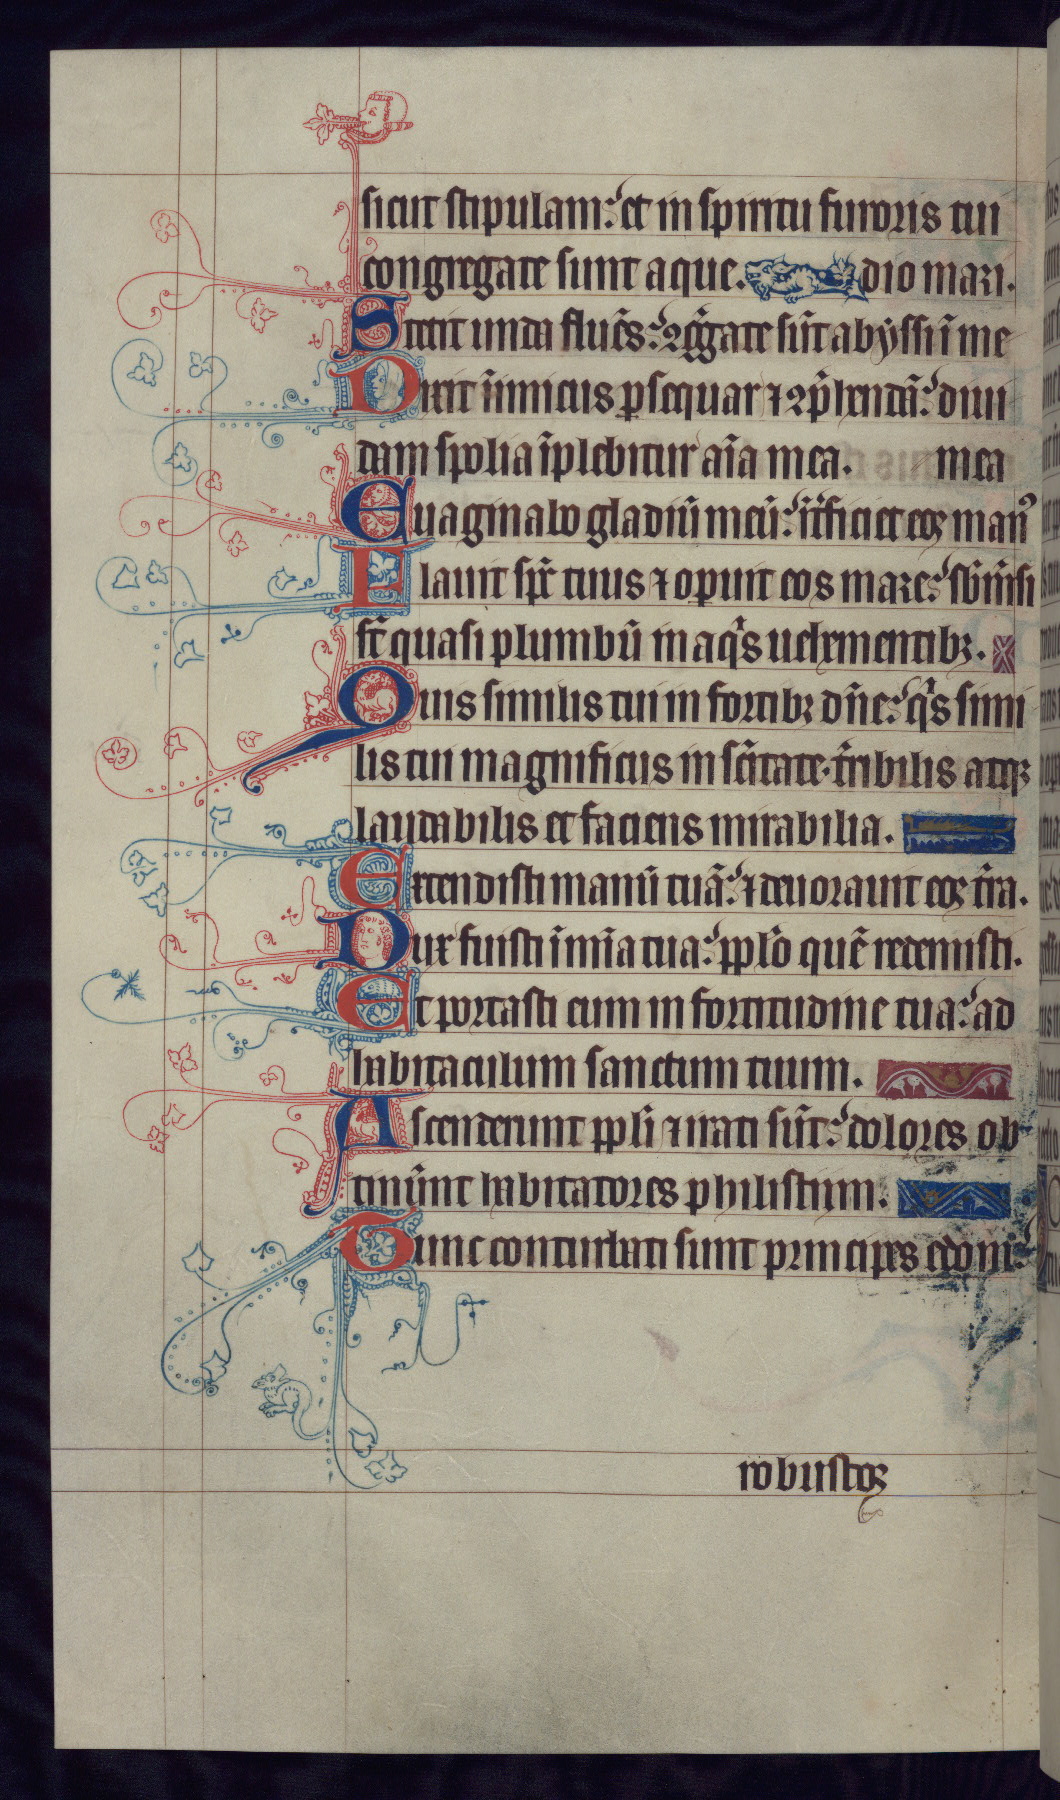 sicut stipulam: et in spiritu furoris tui
congregate sunt aque. dio mari.
Stetit unda flue̅s: ꝯg̅gate su̅t abyssi i̅ me
Dixit i̅nimicus ꝑsequar ⁊ ꝯp̅hendā: diui
dam spolia i̅plebitur ai̅a mea. mea
Euaginabo gladiū meū: i̅t̅ficiet eoꝫ manꝰ
Flauit sp̅c tuus ⁊ opuit eos mare: sub̅m̅si
st̅ quasi plumbū in aqͥs uehementibꝫ.
Quis similis tui in fortibꝫ dn̅e: qͥs simi
lis tui magnificus in sc̅itate· t̅ribilis atqꝫ
laudabilis et faciens mirabilia.
Extendisti manū tuā: ⁊ deuorauit eoꝫ t̅ra.
Dux fuisti i̅ mi̅a tua: ppl̅o quē redemisti.
Et portasti eum in fortitudine tua: ad
habitaculum sanctum tuum.
Ascenderunt ppl̅i ⁊ irati su̅t: dolores ob
tinu̅nt habitatores philistiim.
Tunc conturbati sunt principes edom:
robustoꝫ